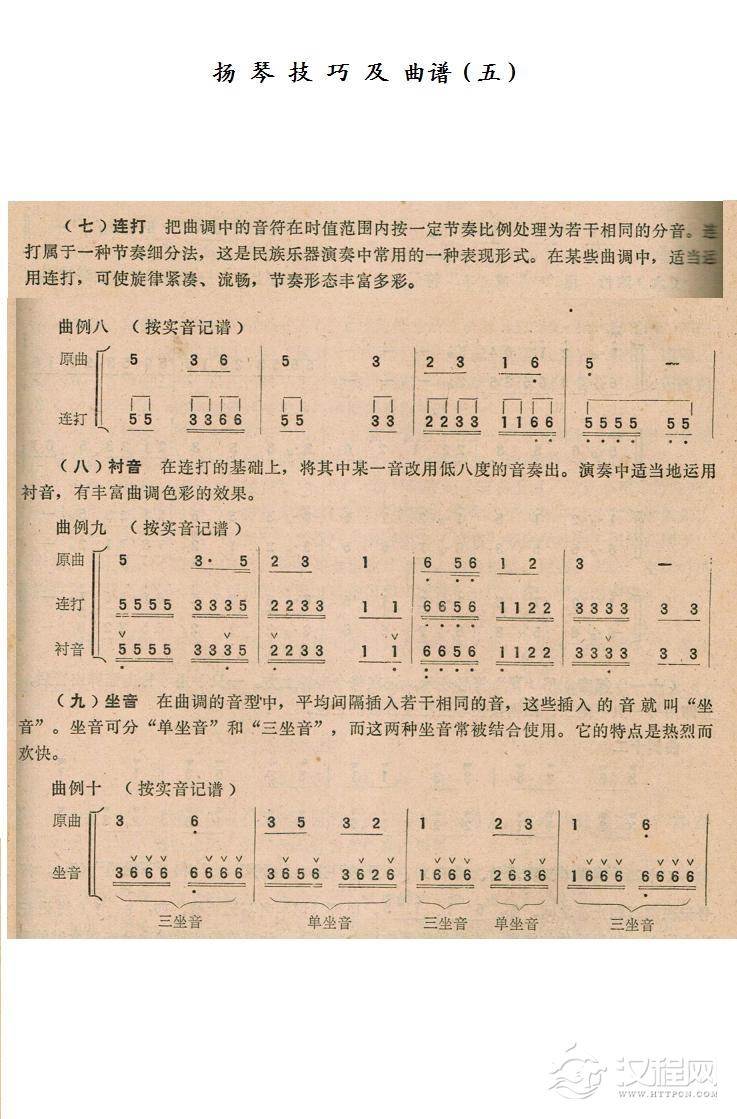 扬 琴 技 巧 及 曲谱（五）
（七）连打　把曲调中的音符在时值范围内按一定节奏比例处理为若干相同的分音。连
打属于一种节奏细分法，这是民族乐器演奏中常用的一种表现形式。在某些曲调中，适当运
用连打，可使旋律紧凑、流畅，节奏形态丰富多彩。
曲例八　（按实音记谱）
原曲 5 3 6 | 5 3 | 2 3 1 6 | 5 — |
连打 55 3366 | 55 33 | 2233 1166 | 5555 55 |
（八）衬音　在连打的基础上，将其中某一音改用低八度的音奏出。演奏中适当地运用
衬音，有丰富曲调色彩的效果。
曲例九　（按实音记谱）
原曲 5 3· 5 | 2 3 1 | 6 56 1 2 | 3 — |
连打 5555 3335 | 2233 1 1 | 6656 1122 | 3333 3 3 |
衬音 5555 3335 | 2233 1 1 | 6656 1122 | 3333 3 3 |
（九）坐音　在曲调的音型中，平均间隔插入若干相同的音，这些插入的音就叫“坐
音”。坐音可分“单坐音”和“三坐音”，而这两种坐音常被结合使用。它的特点是热烈而
欢快。
曲例十　（按实音记谱）
原曲 3 6 | 3 5 3 2 | 1 2 3 | 1 6 |
坐音 3666 6666 | 3656 3626 | 1666 2636 | 1666 6666 |
三坐音 单坐音 三坐音 单坐音 三坐音
汉程网
WWW.HTTPCN.COM